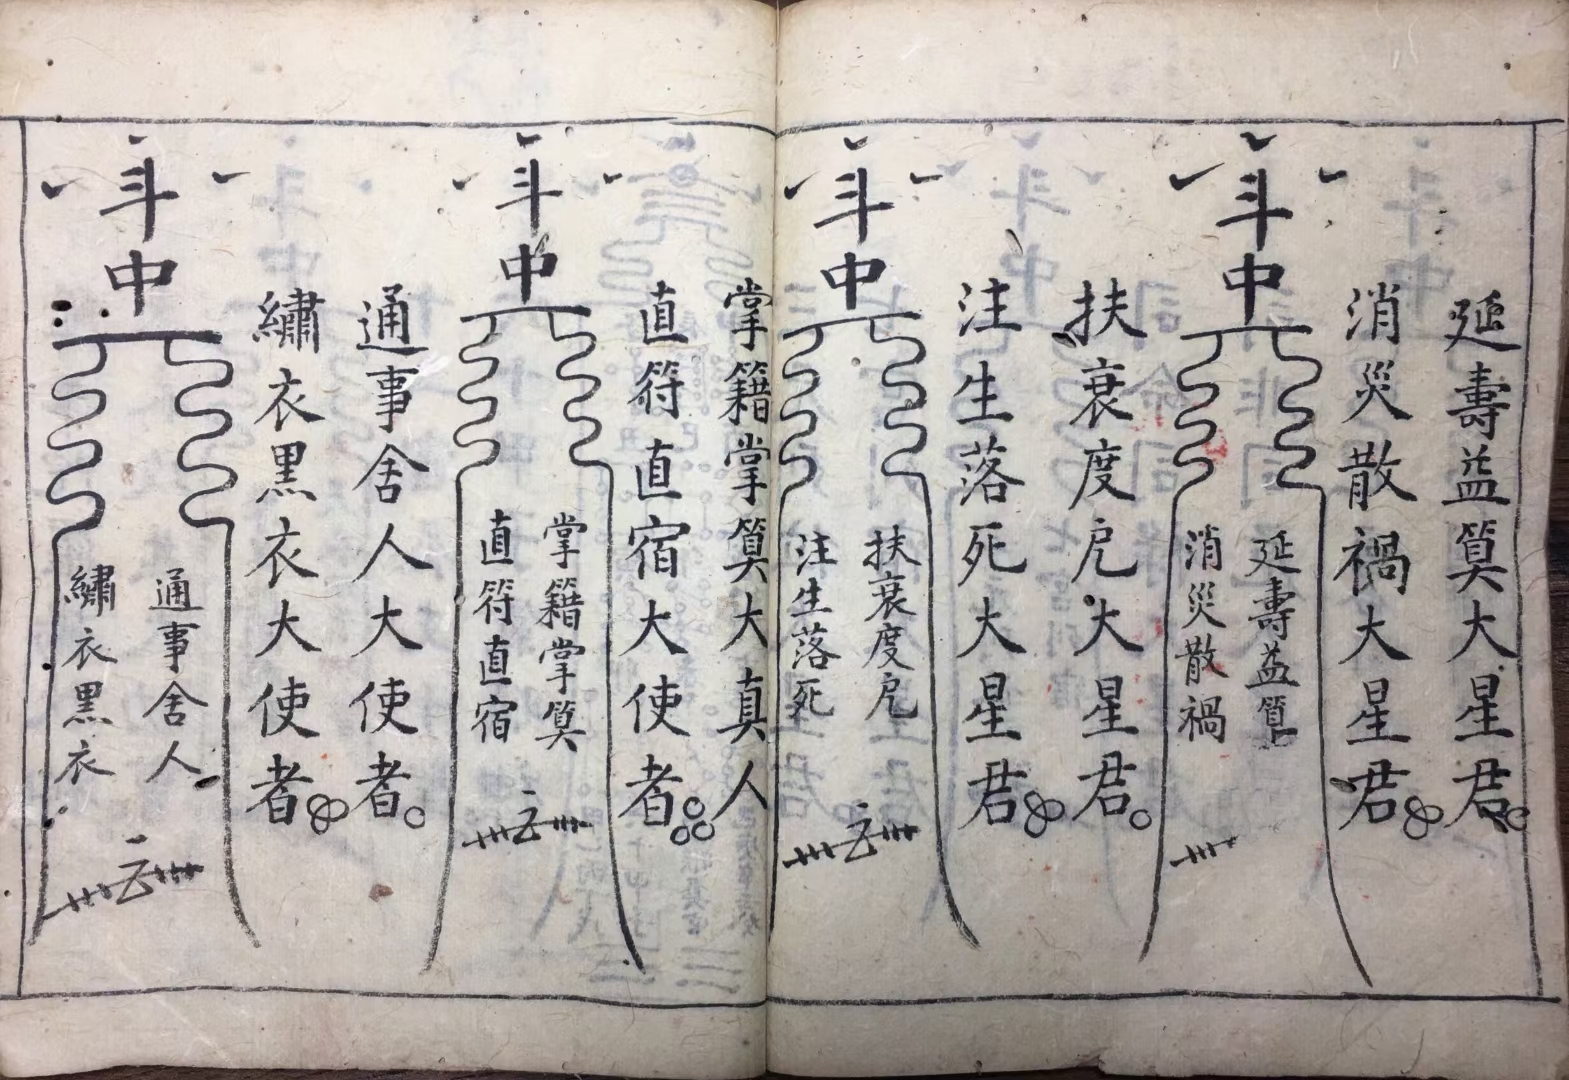 延壽益算大星君
消災散禍大星君
斗中
延壽益算
消災散禍
扶衰度厄大星君
注生落死大星君
斗中
扶衰度厄
注生落死
掌籍掌算大真人
直符直宿大使者
斗中
掌籍掌算
直符直宿
通事舍人大使者
繡衣黑衣大使者
斗中
通事舍人
繡衣黑衣